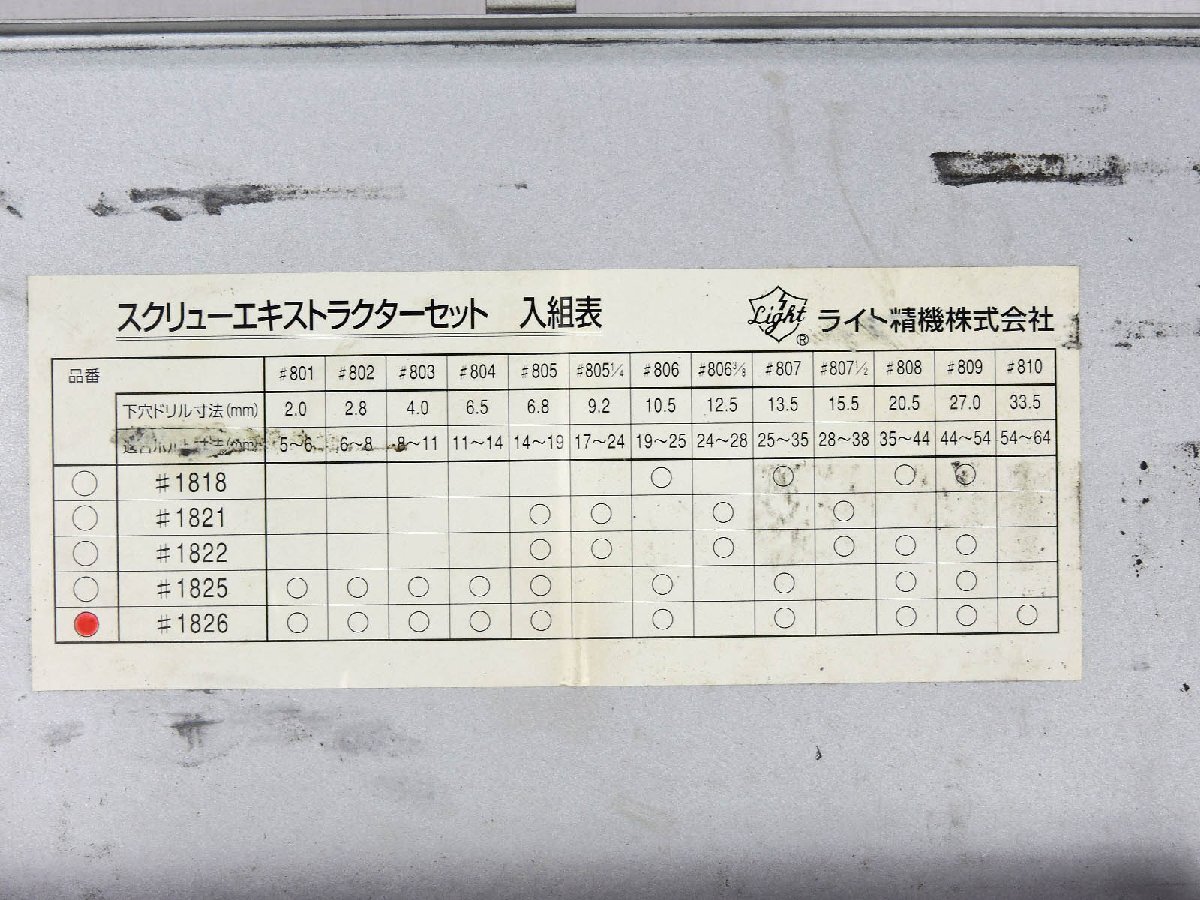 スクリューエキストラクターセット 入組表 Light ® ライト精機株式会社
品番 #801 #802 #803 #804 #805 #805¼ #806 #806⅜ #807 #807½ #808 #809 #810
下穴ドリル寸法(mm) 2.0 2.8 4.0 6.5 6.8 9.2 10.5 12.5 13.5 15.5 20.5 27.0 33.5
適合ボルト寸法(mm) 5〜6 6〜8 8〜11 11〜14 14〜19 17〜24 19〜25 24〜28 25〜35 28〜38 35〜44 44〜54 54〜64
○ #1818 ○ ○ ○ ○
○ #1821 ○ ○ ○ ○
○ #1822 ○ ○ ○ ○ ○ ○
○ #1825 ○ ○ ○ ○ ○ ○ ○ ○ ○
● #1826 ○ ○ ○ ○ ○ ○ ○ ○ ○ ○